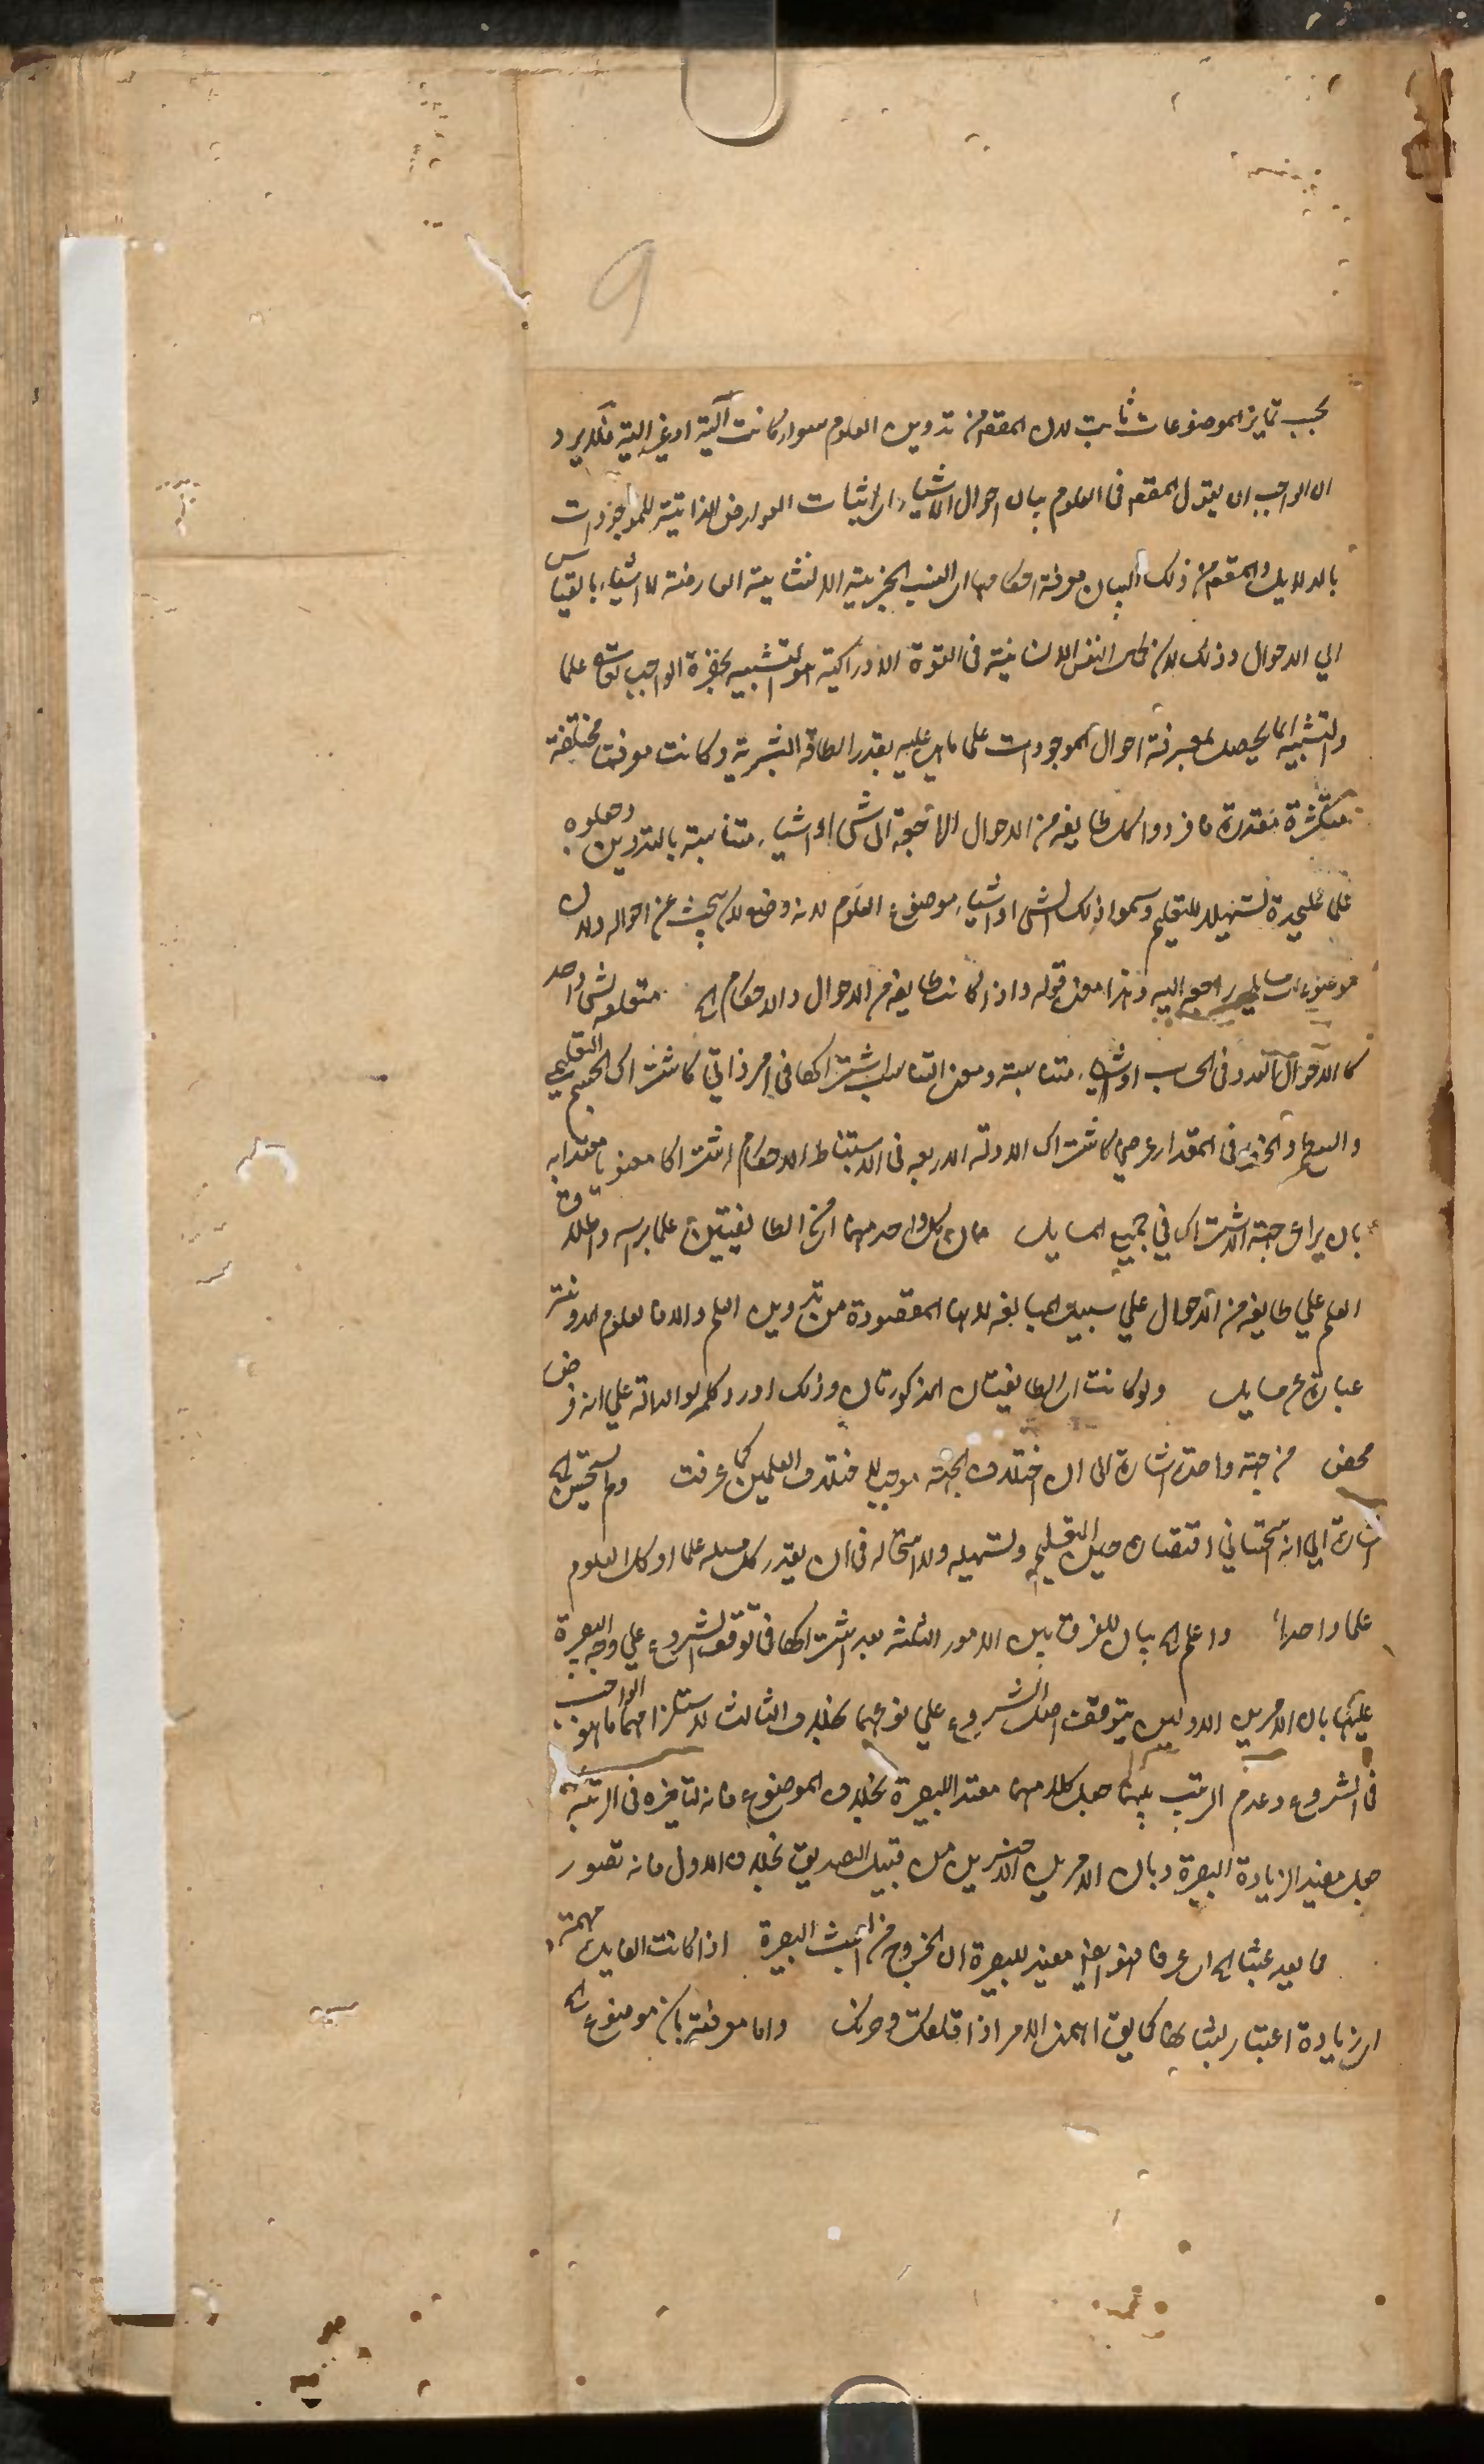 9
بحسب تمايز الموضوعات ثابت لان المقصود من تدوين العلوم سواء كانت آلية او غير الية فلا يرد
ان الواجب ان يقول المقصود في العلوم بيان احوال الاشياء اي اثبات العوارض الذاتية للموجودات
بالدلايل والمقصود من ذلك البيان معرفة احكامها اي النسب الخبرية الانشائية العارضة للاشياء بالقياس
الي الاحوال وذلك لان كمال النفس الانسانية في القوة الادراكية هو التشبيه بحضرة الواجب تع علما
والتشبيه انما يحصل بمعرفة احوال الموجودات علي ما هي عليه بقدر الطاقة البشرية وكانت معرفتها مختلفة
متكثرة متعذرة فافردوا كل طايفة من الاحوال الراجعة الي شئ او اشياء متناسبة بالتدوين وجعلوه
علما عليحدة تسهيلا للتعليم وسموا ذلك الشئ او الاشياء موضوع العلوم لانه وضع لان يبحث عن احواله ولان
موضوعات مسايله راجعة اليه وهذا معنى قوله واذا كانت طايفة من الاحوال والاحكام الخ متعلقة بشئ واحد
كالاحوال للعدد في الحساب او اشياء متناسبة ومعنى التناسب اشتراكها في امر ذاتي كاشتراك الجسم التعليمي
والسطح والخط في المقدار او عرضي كاشتراك الادلة الاربعة في استنباط الاحكام اشتراكا معنويا معتدا به
بان يراعى جهة الاشتراك في جميع المسايل فان كل واحد منهما اي من الطايفتين علما برأسه واطلاق
العلم علي طايفة من الاحوال علي سبيل المبالغة لانها المقصودة من تدوين العلم والا فالعلوم المدونة
عبارة عن مسايل ولو كانت اي الطايفتان المذكورتان وذلك اورد كلمة لو الدالة علي انه فرض
محض من جهة واحدة اشارة الى ان اختلاف الجهة موجب لاختلاف العلمين كما عرفت ولم يستحسن الخ
اشارة الي انه استحساني اقتضاه حسن التعليم وتسهيله ولا استحالة في ان يعدّ كل مسلة علما او كل العلوم
علما واحدا واعلم الخ بيان للفرق بين الامور الثلثة بعد اشتراكها في توقف الشروع علي وجه البصيرة
عليها بان الامرين الاولين يتوقف اصل الشروع علي نوعهما بخلاف الثالث لاستلزامهما ما هو الواجب
في الشروع وعدم الترتب بينهما جعل كلا منهما مفيدا للبصيرة بخلاف الموضوع فانه لتاخره في الرتبة
جعل مفيدا لزيادة البصيرة وبان الامرين الاخيرين من قبيل التصديق بخلاف الاول فانه تصور
فما يعد عبثا الخ اي عرفا فهو ايضا مفيد للبصيرة اي الخروج من العبث البصيرة اذا كانت الفايدة مهمة
اي زيادة اعتبار لشانها كما يقال اهمني الامر اذا اقلقك وحزنك واما معرفته بان موضوع الخ